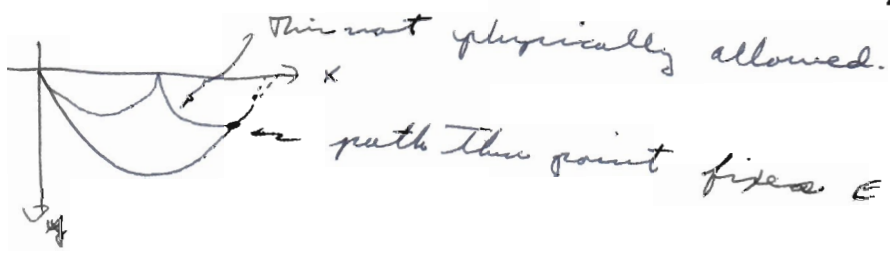 This not physically allowed.
x
path thru point fixes c
y